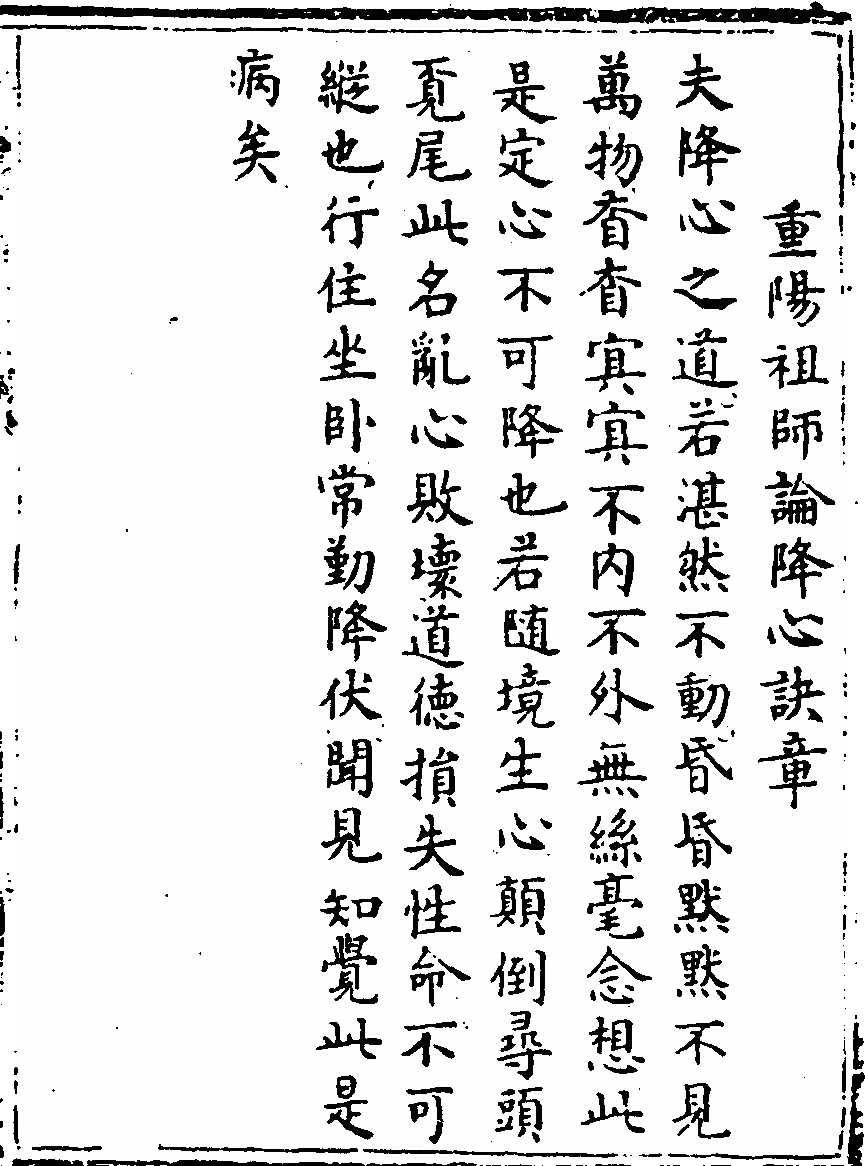 重陽祖師論降心訣章
夫降心之道若湛然不動昏昏默默不見
萬物杳杳冥冥不内不外無絲毫念想此
是定心不可降也若随境生心顛倒尋頭
覔尾此名亂心敗壞道德損失性命不可
縱也行住坐卧常勤降伏聞見知覺此是
病矣